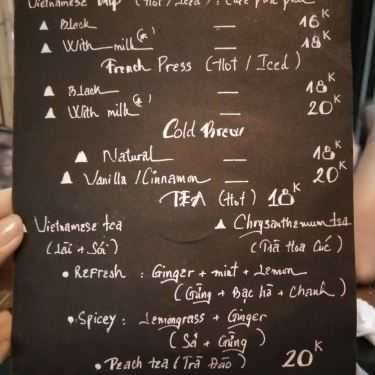 Vietnamese Drip (Hot / Iced) :
Black — 16K
With milk — 18K
French Press (Hot / Iced)
Black — 18K
With milk — 20K
Cold Brew
Natural — 18K
Vanilla / Cinnamon — 20K
TEA (Hot) 18K
Vietnamese tea Chrysanthemum tea
(Lài + Sói) (Trà Hoa Cúc)
Refresh : Ginger + mint + Lemon
(Gừng + Bạc hà + Chanh)
Spicey : Lemongrass + Ginger
(Sả + Gừng)
Peach tea (Trà Đào) 20K